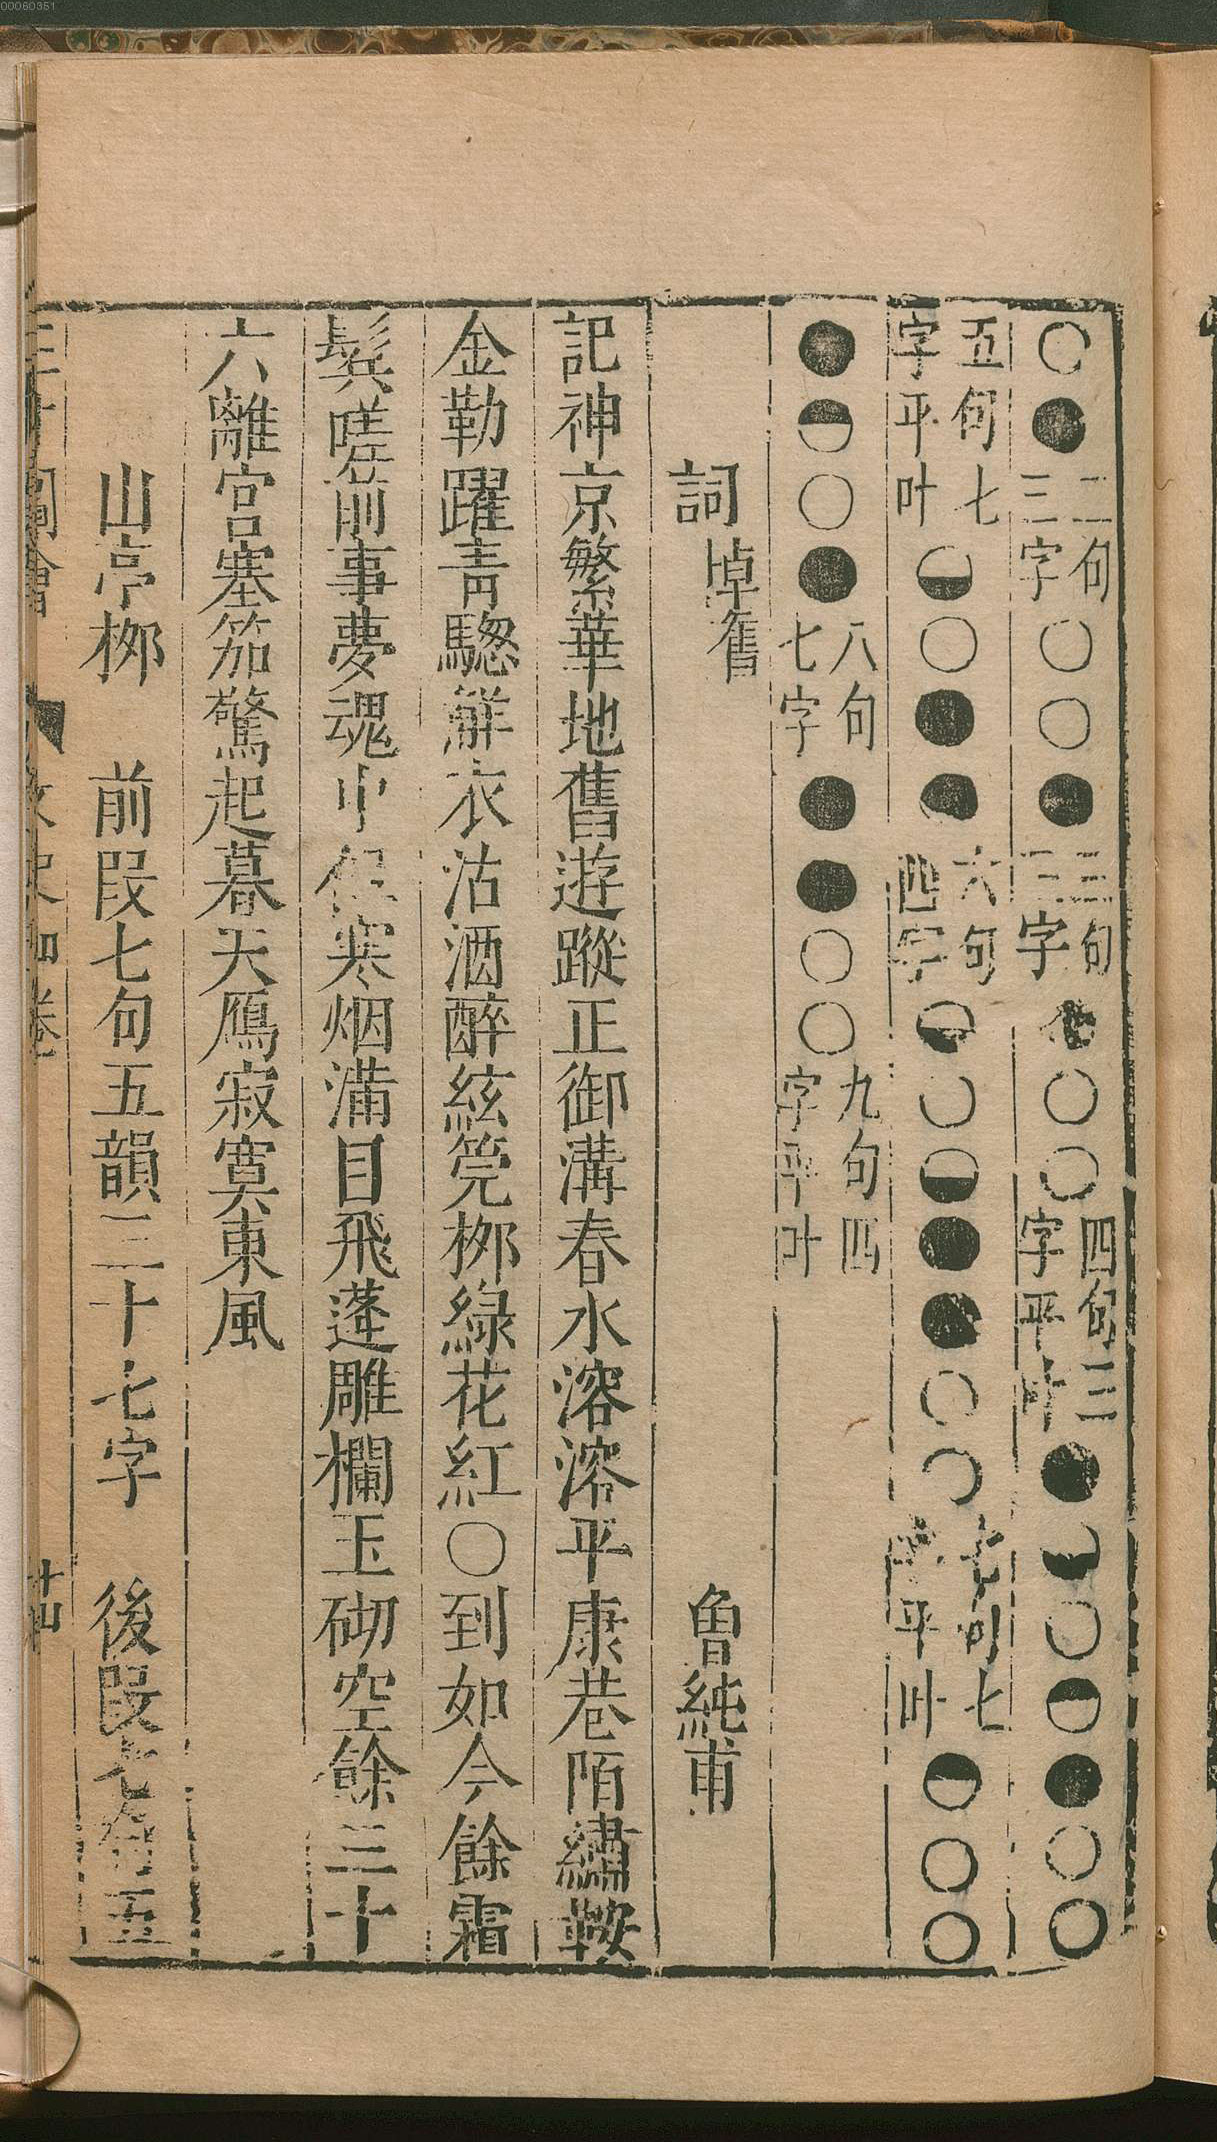 ○●二句三字○○●三句三字●○○四句三字平叶●◒○◓●○○
五句七字平叶◒○●●六句四字◒○◒●●○○七句七字平叶◓○○
●◓○●八句七字●●○○九句四字平叶
詞 悼舊 魯純甫
記神京繁華地舊遊蹤正御溝春水溶溶平康巷陌繡鞍
金勒躍青驄解衣沽酒醉絃筦柳綠花紅○到如今餘霜
鬂嗟前事夢魂中但寒烟滿目飛蓬雕欄玉砌空餘三十
六離宮塞笳驚起暮天鴈寂寞東風
山亭柳 前段七句五韻三十七字 後段七句五
三才圖會 文史四卷 廿四
00060351